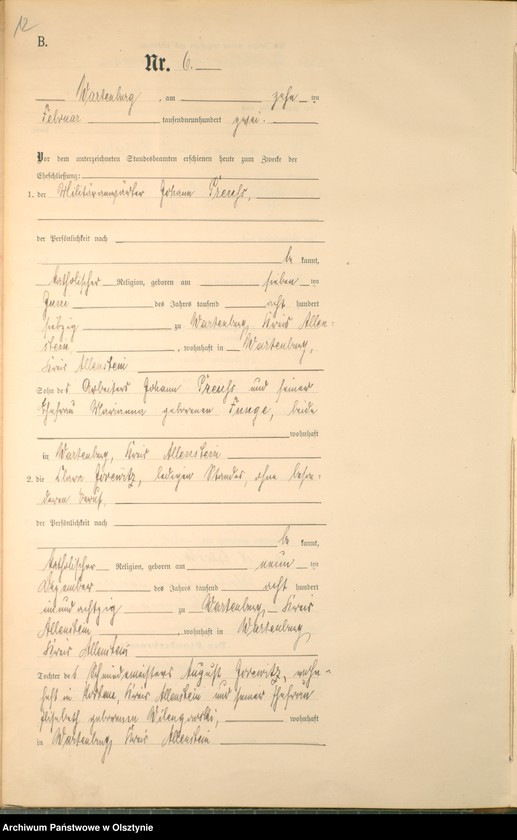 12
B.
Nr. 6.
Wartenburg, am zehn ten
Februar tausendneunhundert zwei.
Vor dem unterzeichneten Standesbeamten erschienen heute zum Zwecke der
Eheschließung:
1. der Militäranwärter Johann Preuhs,
der Persönlichkeit nach
be kannt,
katholischer Religion, geboren am sieben ten
Juni des Jahres tausend acht hundert
siebzig zu Wartenburg, Kreis Allen-
stein, wohnhaft in Wartenburg,
Kreis Allenstein
Sohn des Arbeiters Johann Preuhs und seiner
Ehefrau Marianna geborenen Funge, beide
wohnhaft
in Wartenburg, Kreis Allenstein
2. die Clara ledigen Standes, ohne beson-
deren Beruf,
der Persönlichkeit nach
be kannt,
katholischer Religion, geboren am neun ten
Dezember des Jahres tausend acht hundert
einundachtzig zu Wartenburg, Kreis
Allenstein, wohnhaft in Wartenburg,
Kreis Allenstein
Tochter des Schmiedemeisters August wohn-
haft in Kreis Allenstein und seiner Ehefrau
Elisabeth geborenen wohnhaft
in Wartenburg, Kreis Allenstein
Archiwum Państwowe w Olsztynie